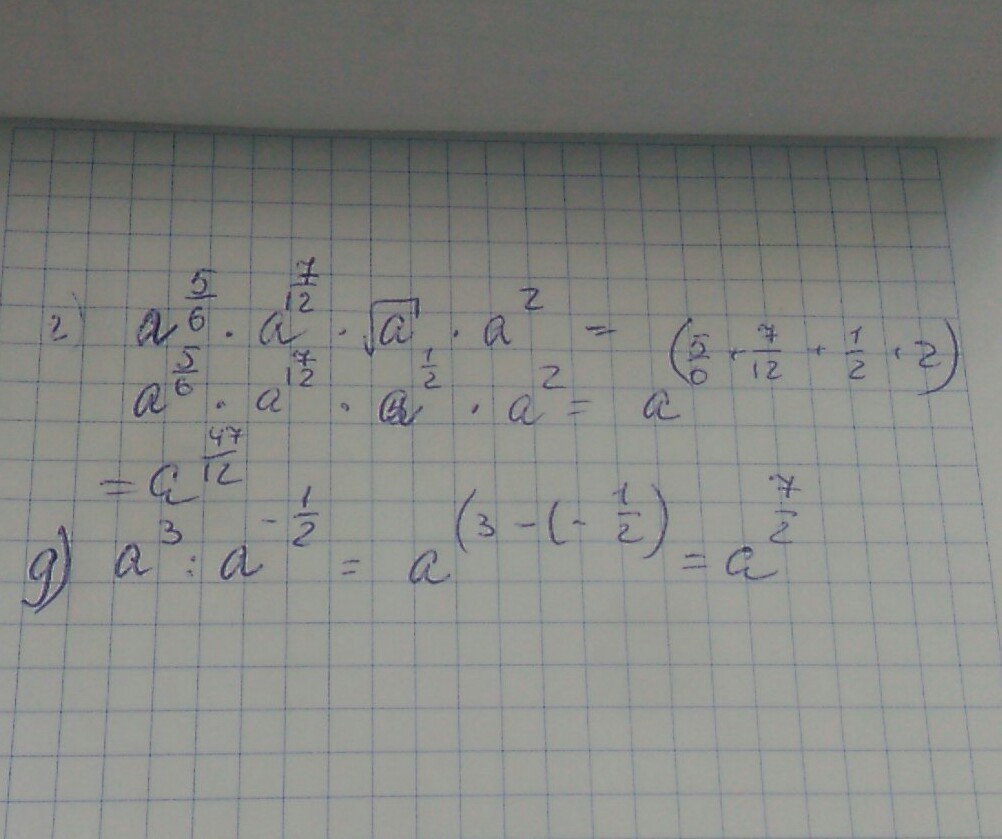 г) a^{5/6} · a^{7/12} · √a · a^2 =
a^{5/6} · a^{7/12} · a^{1/2} · a^2 = a^{(5/6 + 7/12 + 1/2 + 2)}
= a^{47/12}
g) a^3 : a^{-1/2} = a^{(3 - (-1/2)} = a^{7/2}